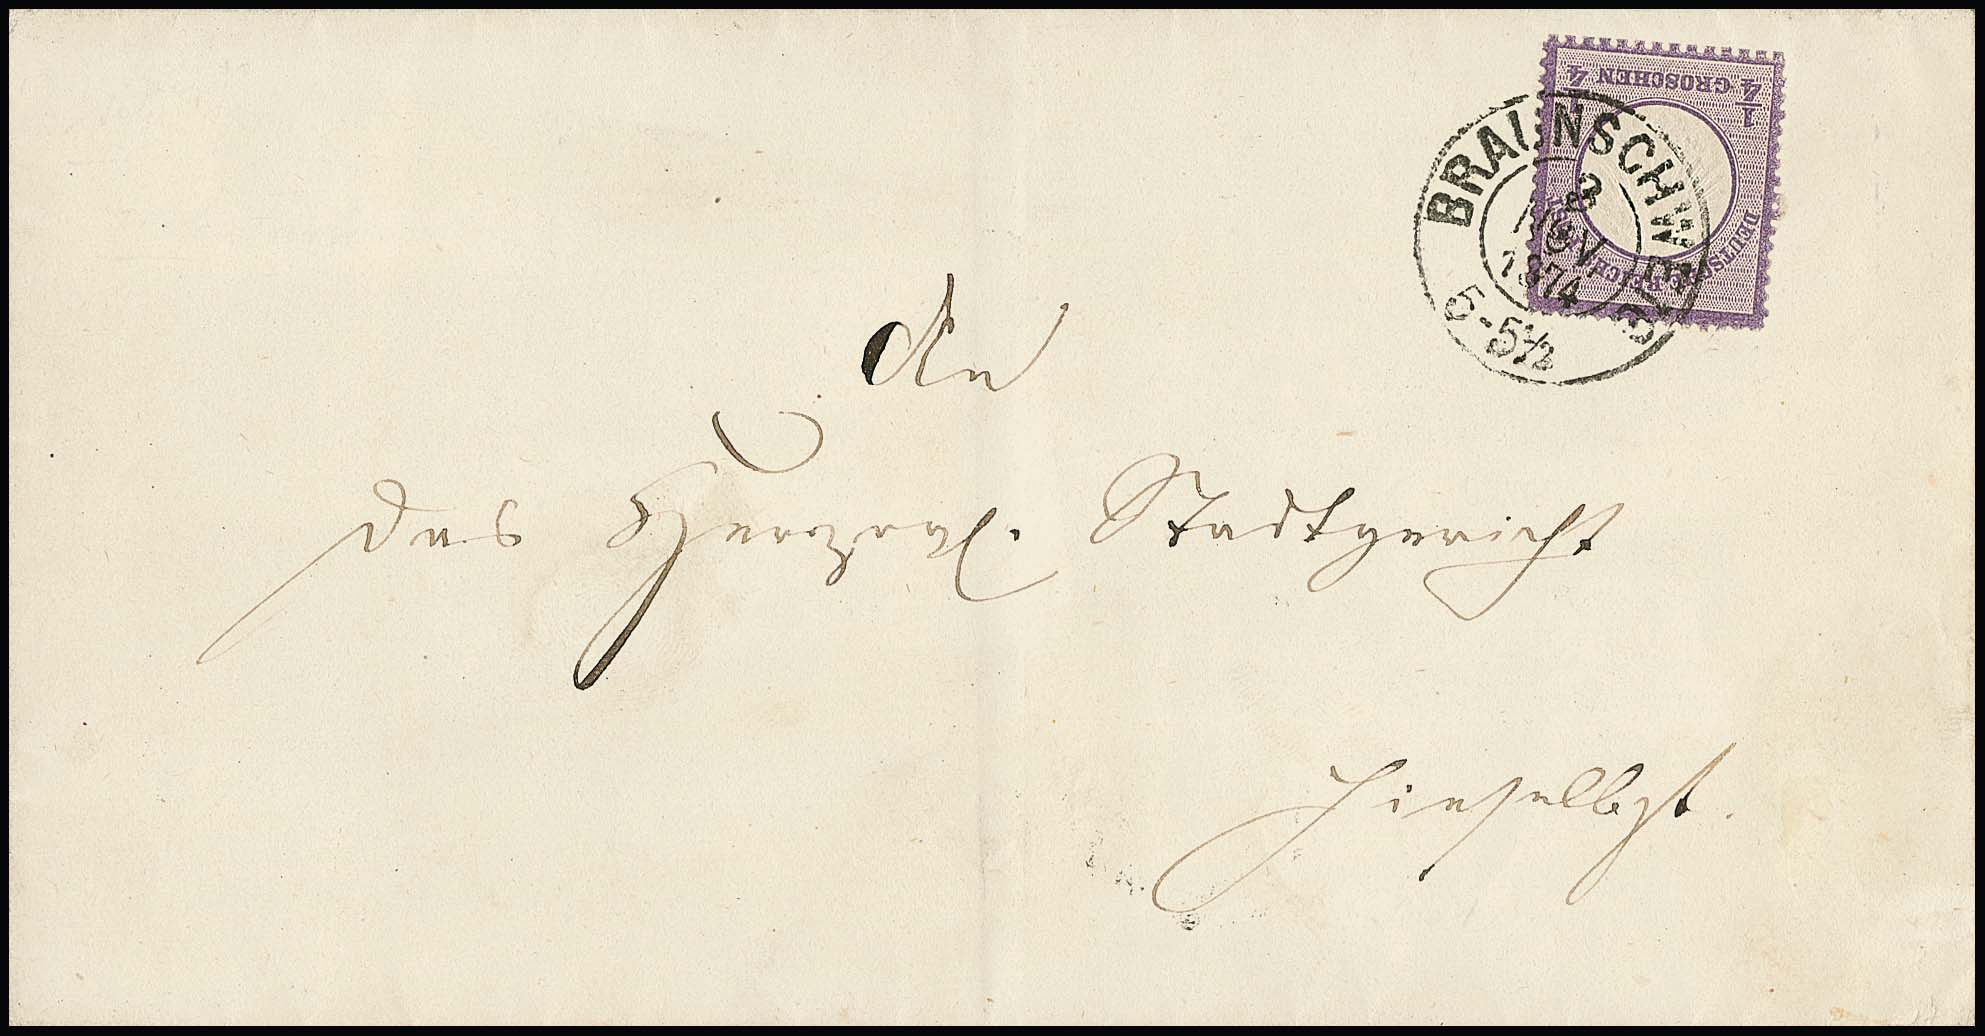 ¼ GROSCHEN ¼
DEUTSCHE REICHS-POST
BRAUNSCHWEIG
8
NOV
1874
5-5½
An
das Herzogl. Stadtgericht
hieselbst.